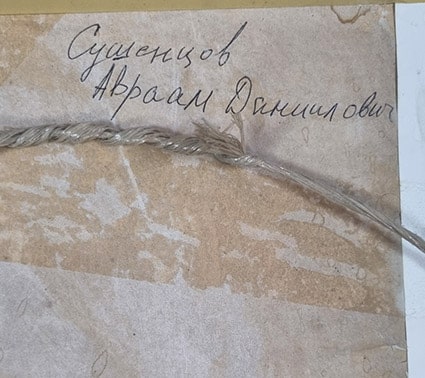 Сушенцов
Авраам Даниилович